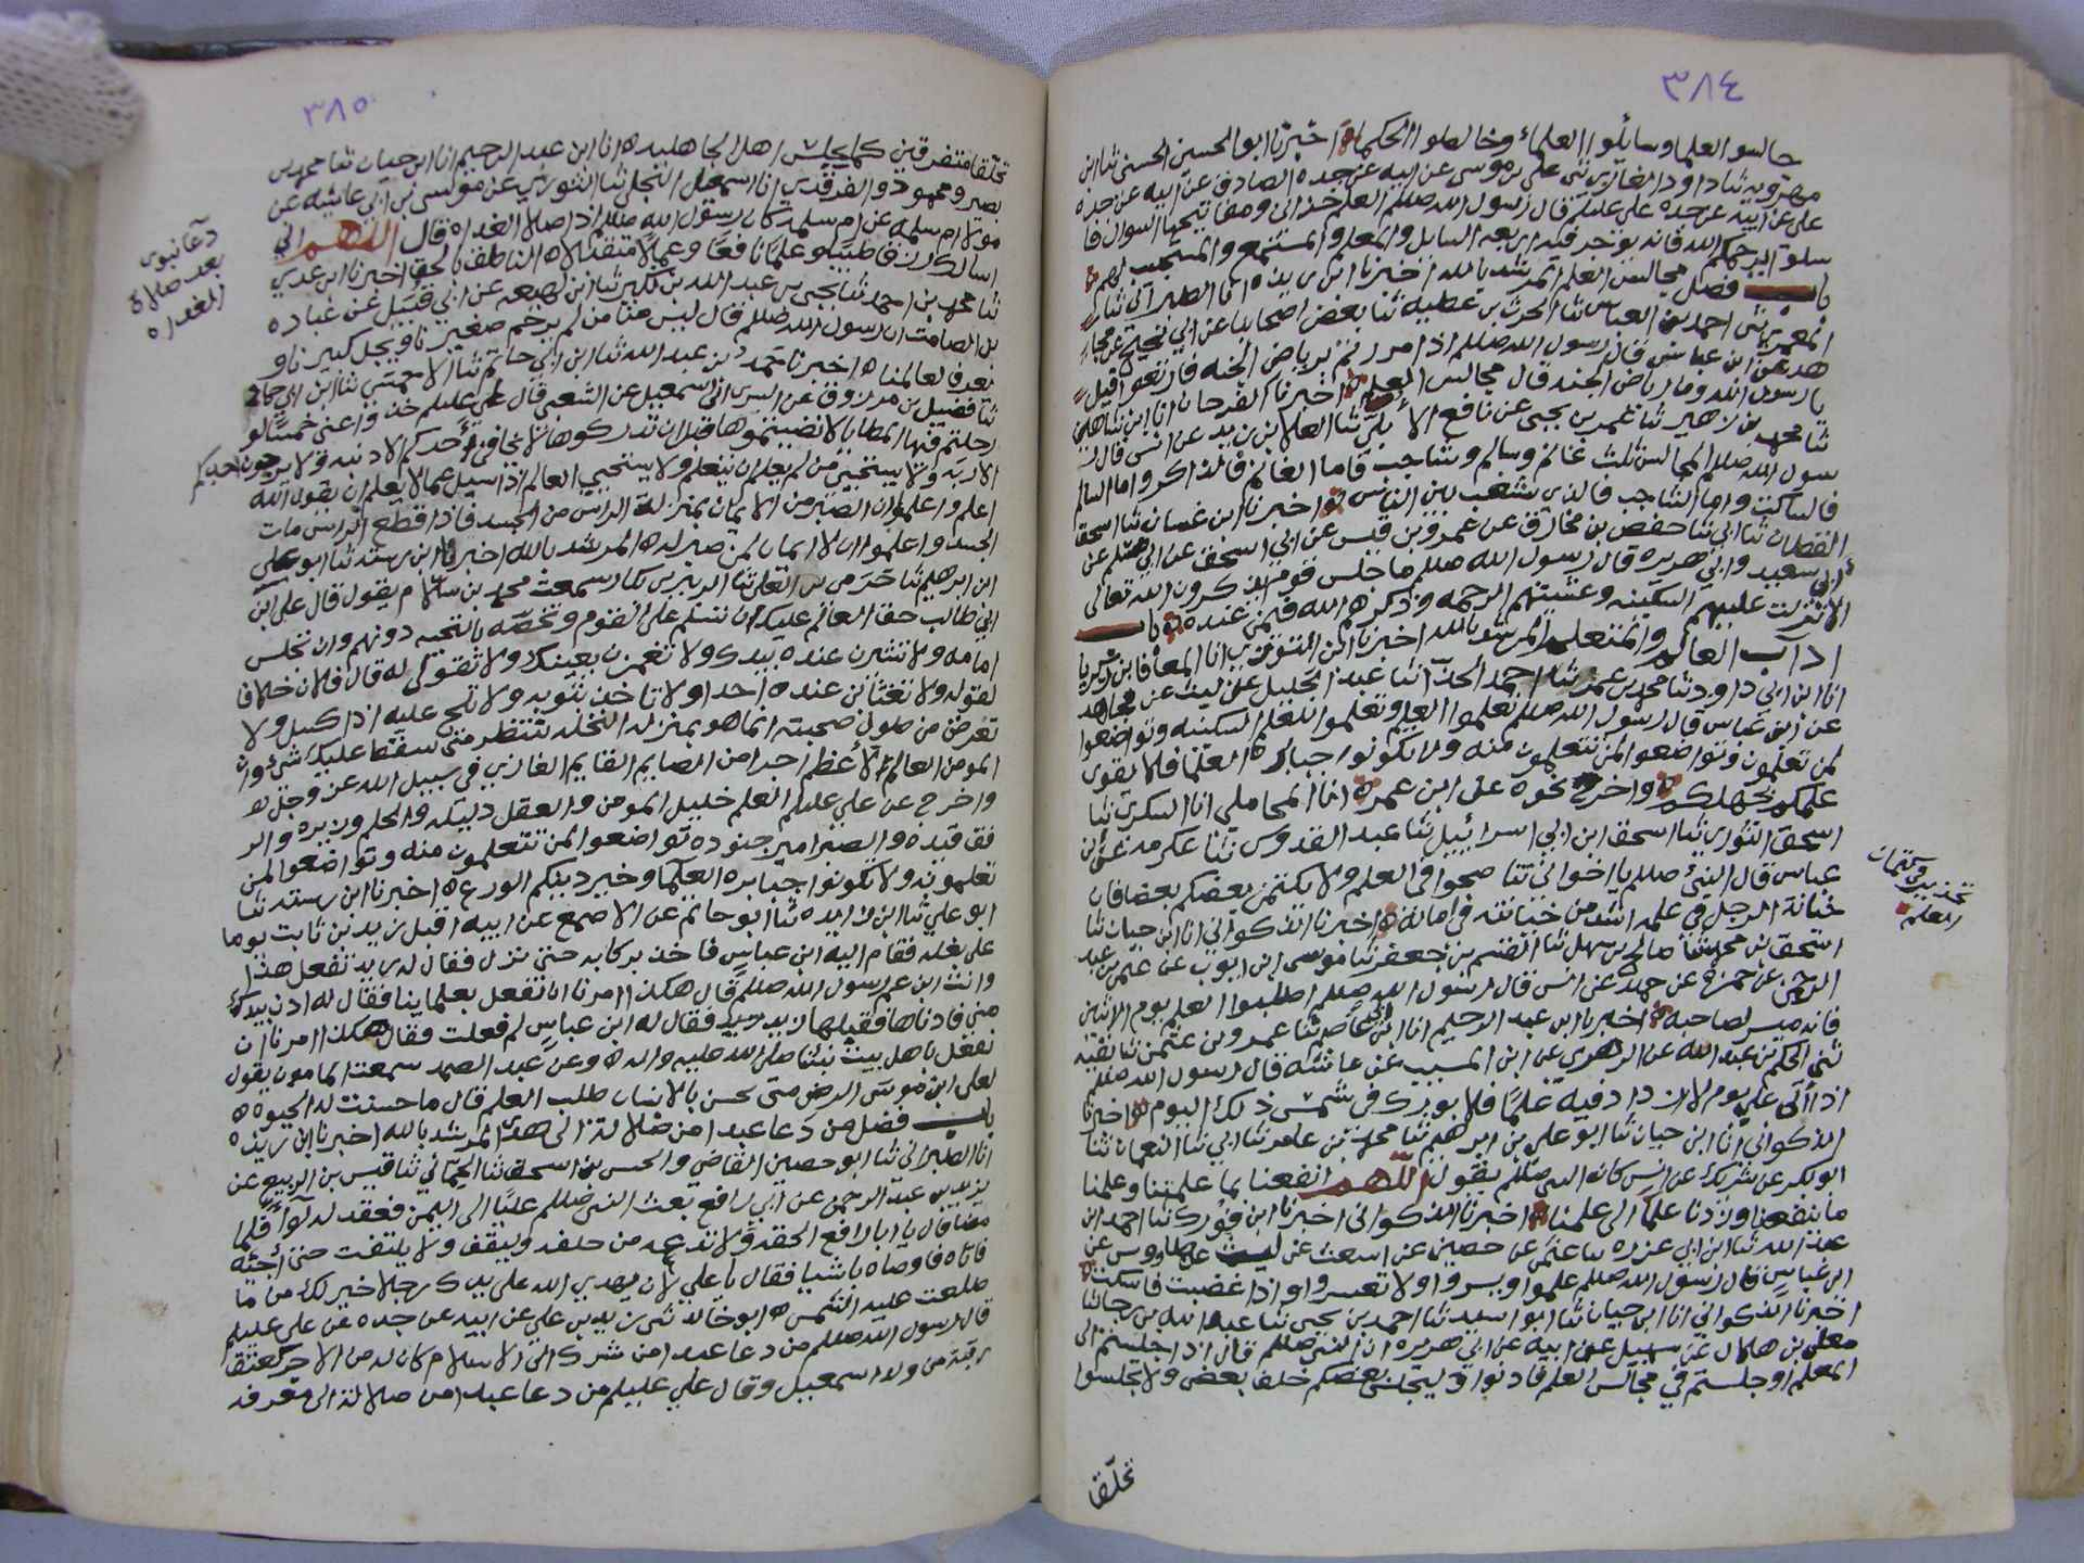 ٣٨٤
جالسوا العلما وسائلوا العلماء وخالطوا الحكما اخبرنا ابو الحسين الحسنى ثنا ابن
مهرويه ثنا داود الغازي ثنى على بن موسى عن ابيه عن جده الصادق عن ابيه عن جده
على عن ابيه عن جده على عليلم قال رسول الله صللم العلم خزائن ومفاتيحها السوال فا
سلوا يرحمكم الله فانه يوجر فيه اربعه السايل والمعلم والمستمع والمستجيب لهم
باب فضل مجالس العلم المرشد بالله اخبرنا ابن ريذه انا الطبراني ثنا
المعمري ثنى احمد بن العباس ثنا الحرث بن عطيه ثنا بعض اصحابنا عن ابي نجيح عن مجا
هد عن ابن عباس قال رسول الله صللم اذا مررتم برياض الجنه فارتعوا قيل
يا رسول الله وما رياض الجنه قال مجالس العلم اخبرنا الفرحان انا ابن شاهين
ثنا محمد بن زهير ثنا عمر بن يحيى عن نافع الأبلي ثنا العلا بن زيد عن انس قال ر
سول الله صللم المجالس ثلث غانم وسالم وشاجب فاما الغانم فالذاكر واما السالم
فالساكت واما الشاجب فالذى يشغب بين الناس اخبرنا ابن غسان ثنا اسحق
القطان ثنا ابي ثنا حفص بن مخارق عن عمرو بن قيس عن ابي اسحق عن ابي مسلم عن
ابي سعيد وابي هريره قال رسول الله صللم ما جلس قوم يذكرون الله تعالى
الا نزلت عليهم السكينه وغشيتهم الرحمه وذكرهم الله فيمن عنده باب
اداب العالم والمتعلم المرشد بالله اخبرنا ابن التنوخي انا المعافا بن زكريا
انا ابن ابي داود ثنا محمد بن عمر ثنا احمد الحداثنا عبد الجليل عن ليث عن مجاهد
عن ابن عباس قال رسول الله صللم تعلموا العلم وتعلموا للعلم السكينه وتواضعوا
لمن تعلمون وتواضعوا لمن تتعلمون منه ولا تكونوا جبابرة العلما فلا يقوى
علمكم بجهلكم واخرج نحوه على ابن عمر انا المحاملي انا السكرى ثنا
اسحق الثوارى ثنا اسحق ابن ابي اسرائيل ثنا عبد القدوس ثنا عكرمه عن ابن
عباس قال النبى صللم يا اخواني تناصحوا في العلم ولا يكتمن بعضكم بعضا فان
خيانة الرجل في علمه اشد من خيانته في ماله اخبرنا الذكواني انا ابن حيان ثنا
اسحق بن محمد ثنا صالح بن سهل ثنا القسم بن جعفر ثنا موسى ابن ايوب عن عثمن بن عبد
الرحمن عن حمزه عن حميد عن انس قال رسول الله صللم اطلبوا العلم يوم الاثنين
فانه ميسر لصاحبه اخبرنا ابن عبد الرحيم انا ابن ابي عاصم ثنا عمرو بن عثمن ثنا بقيه
ثنى الحكم بن عبد الله عن الزهرى عن ابن المسيب عن عائشه قال رسول الله صللم
اذا أتى علي يوم لا ازداد فيه علمًا فلا بورك في شمس ذلك اليوم اخبرنا
الذكواني انا ابن حيان ثنا ابو علي بن ابرهيم ثنا محمد بن عامر ثنا ابي ثنا النعمان ثنا
ابو بكر عن شريك عن انس كان النبي صللم يقول اللهم انفعنا بما علمتنا وعلمنا
ما ينفعنا وزدنا علمًا الى علمنا اخبرنا الذكوانى اخبرنا ابن فورك ثنا احمد ابن
عبد الله ثنا ابن ابي عزره ثنا عثمن عن حصين عن اسعث عن ليث عن طاووس عن
ابن عباس قال رسول الله صللم علموا ويسروا ولا تعسروا واذا غضبت فاسكت
اخبرنا الذكواني انا ابن حيان ثنا ابو اسيد ثنا احمد بن يحيى ثنا عبد الله بن رجا ثنا
معلى بن هلال عن سهيل عن ابيه عن ابي هريره ان النبي صللم قال اذا جلستم الى
المعلم او جلستم في مجالس العلم فادنوا وليجلس بعضكم خلف بعض ولا تجلسوا
تحلّقا
تحذير من كتمان
العلم
٣٨٥
تحلّقا متفرقين كما يجلس اهل الجاهليه انا ابن عبد الرحيم انا ابن حيان ثنا محمد بن
بصير ومحمود والفرقدي انا اسمعيل البجلي ثنا الثوري عن موسى بن ابي عايشه عن
مولى لام سلمه عن ام سلمه كان رسول الله صللم اذا صلا الغداه قال اللهم اني
اسالك رزقا طيبًا وعلمًا نافعًا وعملًا متقبلا الناطق بالحق اخبرنا ابن عدي
ثنا محمد بن احمد ثنا يحيى بن عبد الله بن بكير ثنا ابن لهيعه عن ابي قبيل عن عباده
بن الصامت ان رسول الله صللم قال ليس منا من لم يرحم صغيرنا ويجل كبيرنا و
يعرف لعالمنا اخبرنا محمد بن عبد الله ثنا ابن ابي حاتم ثنا الاحمسي ثنا ابن ابي حماد
ثنا فضيل بن مرزوق عن السرى ابن اسمعيل عن الشعبي قال على عليلم خذوا عني خمسًا لو
رحلتم فيها المطايا لانضيتموها قبل ان تدركوها لا يخافن احدكم الا ذنبه ولا يرجون احدكم
الا ربه ولا يستحيي من لم يعلم ان يتعلم ولا يستحيي العالم اذا سيل عما لا يعلم ان يقول الله
اعلم واعلموا ان الصبر من الايمان بمنزلة الراس من الجسد فاذا قطع الراس مات
الجسد واعلموا ان لا ايمان لمن صبر له المرشد بالله اخبرنا ابن رسته ثنا ابو علي
ابن ابرهيم ثنا حرمي بن العلى ثنا الزبير بن بكار سمعت محمد بن سلام يقول قال على ابن
ابي طالب حق العالم عليك ان تسلم على القوم وتخصه بالتحيه دونهم وان تجلس
امامه ولا تشيرن عنده بيدك ولا تغمزن بعينك ولا تقولن له قال فلان خلافا
لقوله ولا تغتابن عنده احدا ولا تاخذ بثوبه ولا تلح عليه اذا كسل ولا
تعرض من طول صحبته انما هو بمنزله النخله تنتظر متى سقط عليك شي وان
المومن العالم لأعظم اجرا من الصايم القايم الغازي في سبيل الله عز وجل
واخرج عن علي عليلم العلم خليل المومن والعقل دليله والحلم وزيره والر
فق قيده والصبر امير جنوده تواضعوا لمن تتعلمون منه وتواضعوا لمن
تعلمونه ولا تكونوا جبابره العلما وخير دينكم الورع اخبرنا ابن رسته ثنا
ابو علي ثنا ابن ثنا ابو حاتم عن الاصمع عن ابيه اقبل زيد بن ثابت يوما
على بغله فقام اليه ابن عباس فاخذ بركابه حتى نزل فقال له زيد تفعل هذا
وانت ابن عم رسول الله صللم قال هكذا امرنا ان نفعل بعلماينا فقال له ادن يدك
مني فادناها فقبلها زيد فقال له ابن عباس لم فعلت فقال هكذا امرنا ان
نفعل باهل بيت نبينا صلى الله عليه واله وعن عبد الصمد سمعت المامون يقول
لعلي ابن موسى الرضى متى يحسن بالانسان طلب العلم قال ما حسنت له الحيوه
باب فضل من دعا عبدا من ضلالة الى هدى المرشد بالله اخبرنا ابن ريذه
انا الطبراني ثنا ابو حصين القاضي والحسن بن اسحق ثنا الحمّاني ثنا قيس بن الربيع عن
يزيد بن عبد الرحمن عن ابي رافع بعث النبي صللم عليًا الى اليمن فعقد له لوآً فلما
مضا قال يا ابا رافع الحقه ولا تدعه من خلفه وليقف ولا يلتفت حتى أجيه
فاتاه فاوصاه باشيا فقال يا علي لأن يهدي الله على يديك رجلا خير لك من ما
طلعت عليه الشمس ابو خالد ثنى زيد بن علي عن ابيه عن جده عن علي عليلم
قال رسول الله صللم من دعا عبدا من شرك الى الاسلام كان له من الاجر كعتق
رقبة من ولد اسمعيل وقال علي عليلم من دعا عبدا من ضلالة الى معرفه
دعا نبوى
بعد صلاة
الغداه